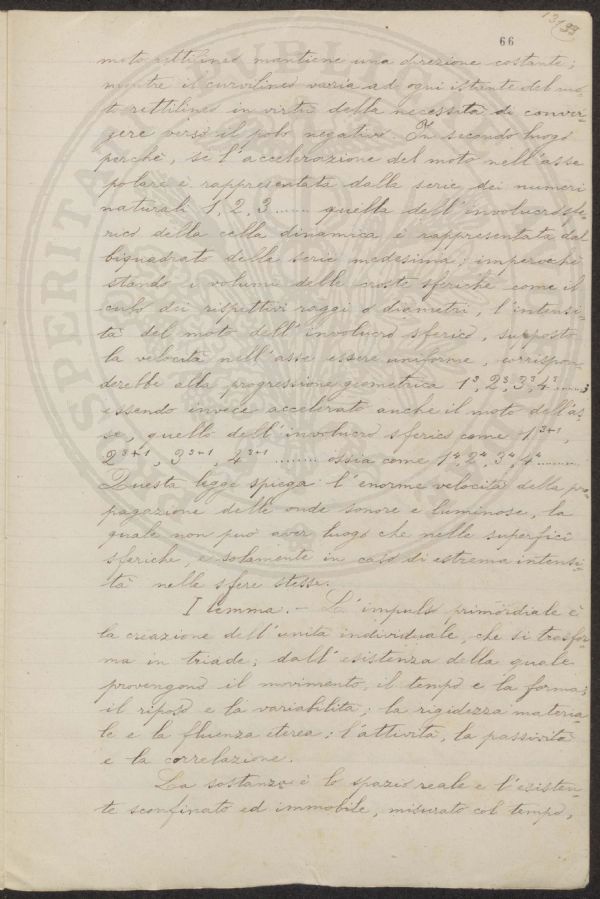 131 99
66
moto rettilineo mantiene una direzione costante;
mentre il curvilineo varia ad ogni istante del mo-
to rettilineo in virtù della necessità di conver-
gere verso il polo negativo. In secondo luogo
perchè, se l'accelerazione del moto nell'asse
polare è rappresentata dalla serie dei numeri
naturali 1, 2, 3 ...... quella dell'involucro sfe-
rico della cella dinamica è rappresentata dal
biquadrato della serie medesima; imperochè
stando i volumi delle croste sferiche come il
cubo dei rispettivi raggi o diametri, l'intensi-
tà del moto dell'involucro sferico, supposto
la velocità nell'asse essere uniforme, corrispon-
derebbe alla progressione geometrica 1³, 2³, 3³, 4³ ......;
essendo invece accelerato anche il moto dell'as-
se, quello dell'involucro sferico come 1³⁺¹,
2³⁺¹, 3³⁺¹, 4³⁺¹ ......... ossia come 1⁴, 2⁴, 3⁴, 4⁴ .........
Questa legge spiega l'enorme velocità della pro-
pagazione delle onde sonore e luminose, la
quale non può aver luogo che nelle superfici
sferiche, e solamente in caso di estrema intensi-
tà nelle sfere stesse.
I lemma. - L'impulso primordiale è
la creazione dell'unità individuale, che si trasfor-
ma in triade; dall'esistenza della quale
provengono il movimento, il tempo e la forma;
il riposo e la variabilità; la rigidezza materia-
le e la fluenza eterea; l'attività, la passività
e la correlazione.
La sostanza è lo spazio reale e l'esisten-
te sconfinato ed immobile, misurato col tempo,